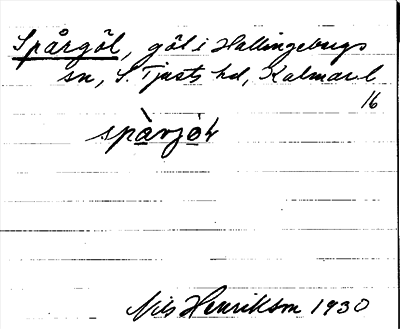 Spårgöl, göl i Hallingebergs
sn, S. Tjusts hd, Kalmar l
16
Nils Henrikson 1930